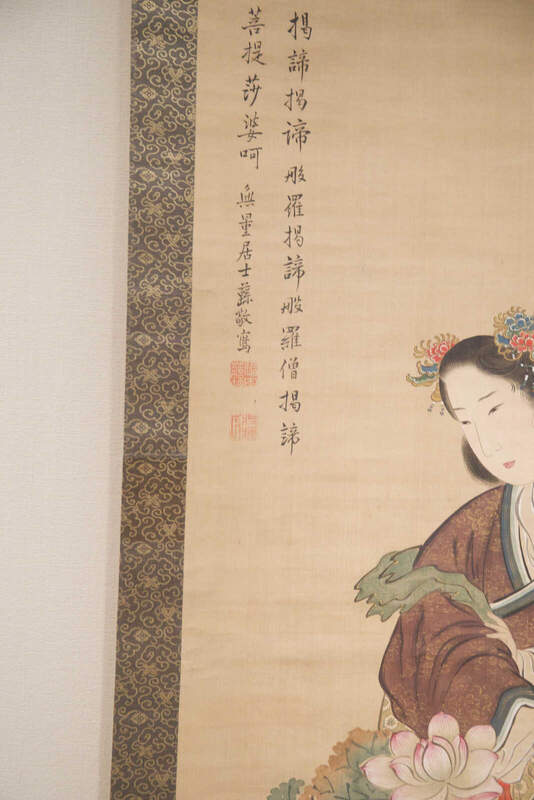 揭諦揭諦般羅揭諦般羅僧揭諦
菩提莎婆呵 無量居士蘇敬寫